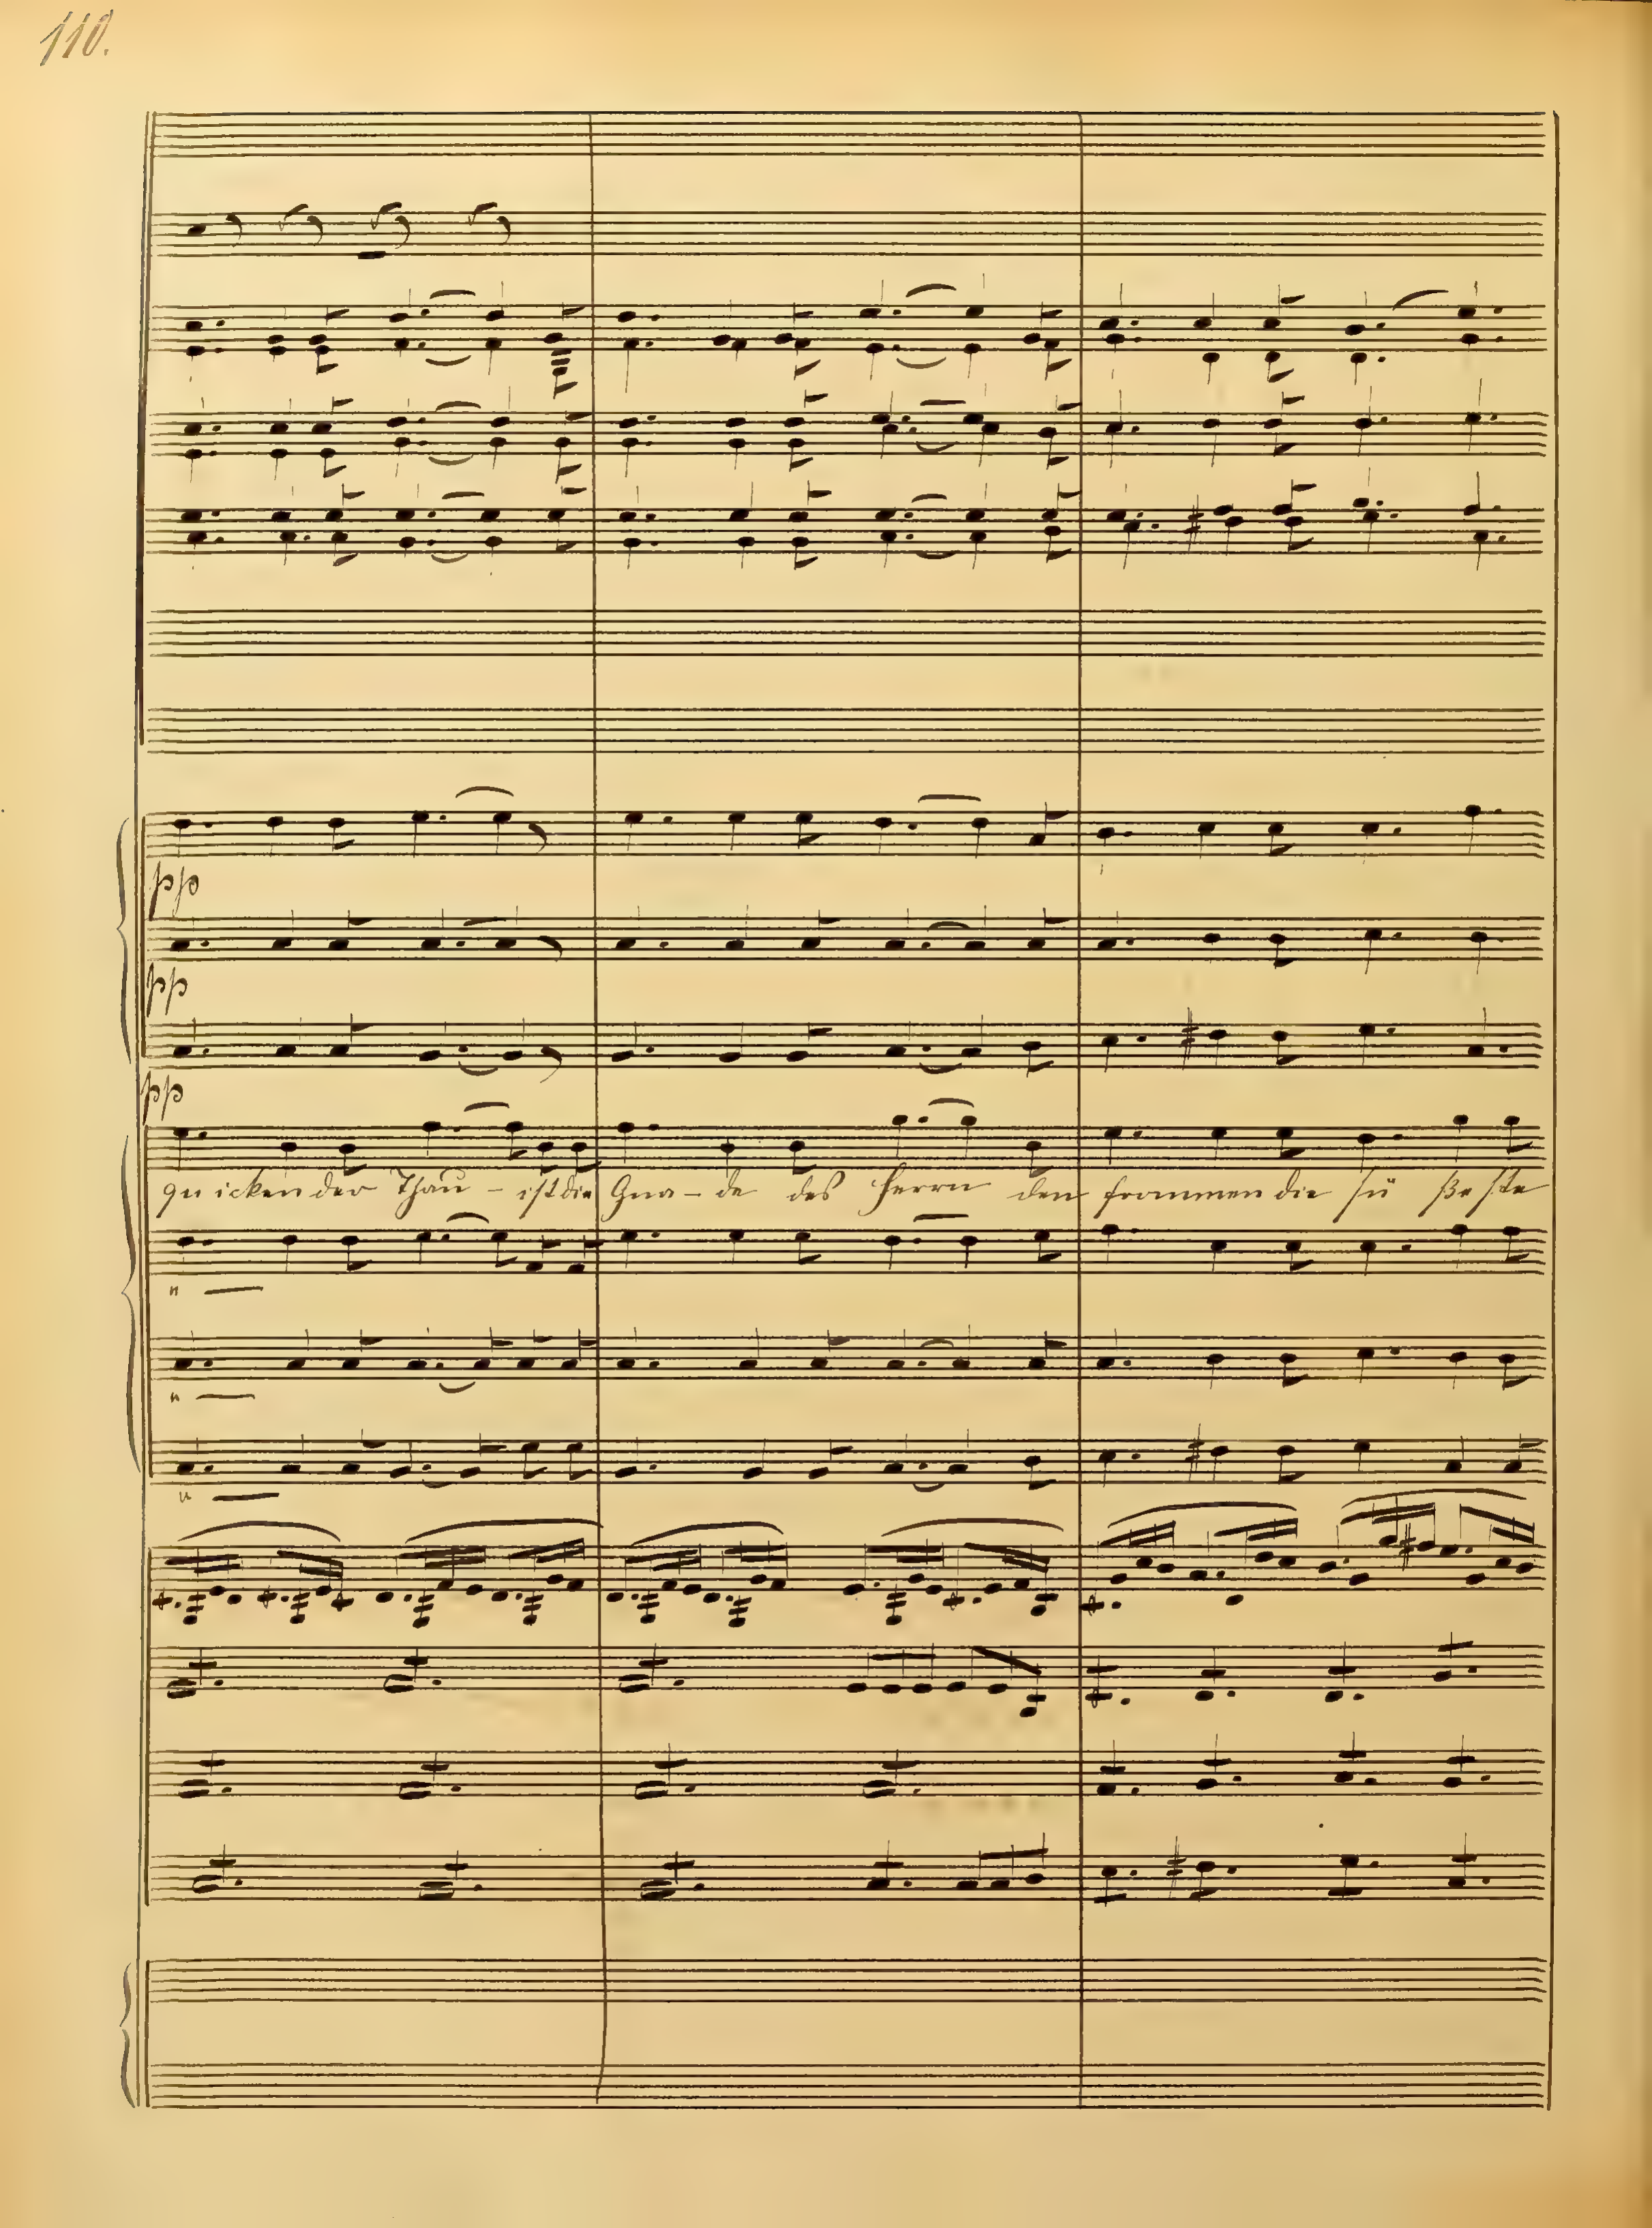 110.
pp
pp
pp
quicken der Thau - ist die Gna - de des Herrn den frommen die sü ßeste
" —
" —
" —